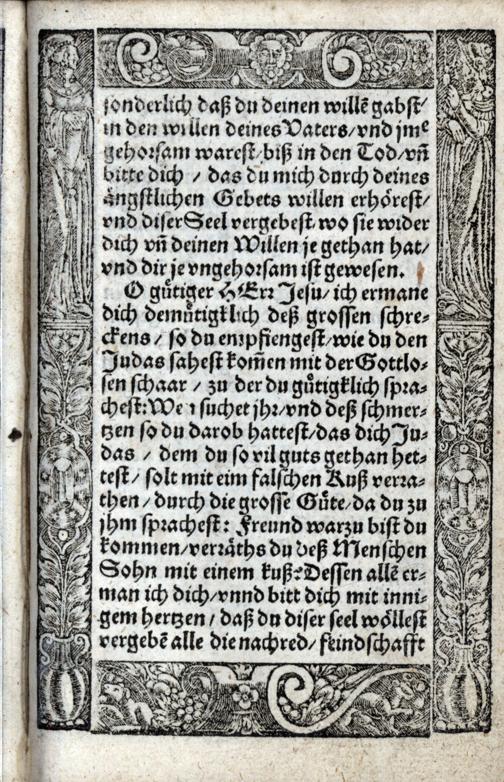 sonderlich daß du deinen willē gabst/
in den willen deines Vaters/ vnd jmͤ
gehorsam warest/ biß in den Tod/ vñ
bitte dich / das du mich durch deines
ängstlichen Gebets willen erhörest/
vnd diser Seel vergebest wo sie wider
dich vñ deinen Willen je gethan hat/
vnd dir je vngehorsam ist gewesen.
O gütiger HErr Jesu/ ich ermane
dich demütigklich deß grossen schre-
ckens / so du empfiengest/ wie du den
Judas sahest kom̄en mit der Gottlo-
sen schaar / zu der du gütigklich spra-
chest: Wen suchet jhr/ vnd deß schmer-
tzen so du darob hattest/ das dich Ju-
das / dem du so vil guts gethan het-
test/ solt mit eim falschen Kuß verra-
then/ durch die grosse Güte/ da du zu
jhm sprachest: Freund warzu bist du
kommen/ verräths du deß Menschen
Sohn mit einem kuß? Dessen allē er-
man ich dich/ vnnd bitt dich mit inni-
gem hertzen/ daß du diser seel wöllest
vergebē alle die nachred/ feindschafft